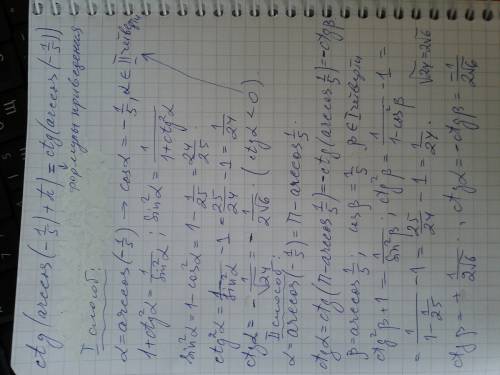 ctg(arccos(-1/5)+π) = ctg(arccos(-1/5))
формулы приведения
I способ:
α=arccos(-1/5) → cosα = -1/5, α∈II четверти
1+ctg²α = 1/sin²α ; sin²α = 1/(1+ctg²α)
sin²α = 1-cos²α = 1-1/25 = 24/25
ctg²α = 1/sin²α - 1 = 25/24 - 1 = 1/24
ctgα = -1/√24 = -1/2√6 (ctgα<0)
II способ:
α=arccos(-1/5) = π-arccos 1/5
ctgα = ctg(π-arccos 1/5) = -ctg(arccos 1/5) = -ctgβ
β=arccos 1/5, cosβ = 1/5 β∈I четверти
ctg²β+1 = 1/sin²β ; ctg²β = 1/(1-cos²β) - 1 =
= 1/(1-1/25) - 1 = 25/24 - 1 = 1/24 √24=2√6
ctgβ = +1/2√6 ; ctgα = -ctgβ = -1/2√6